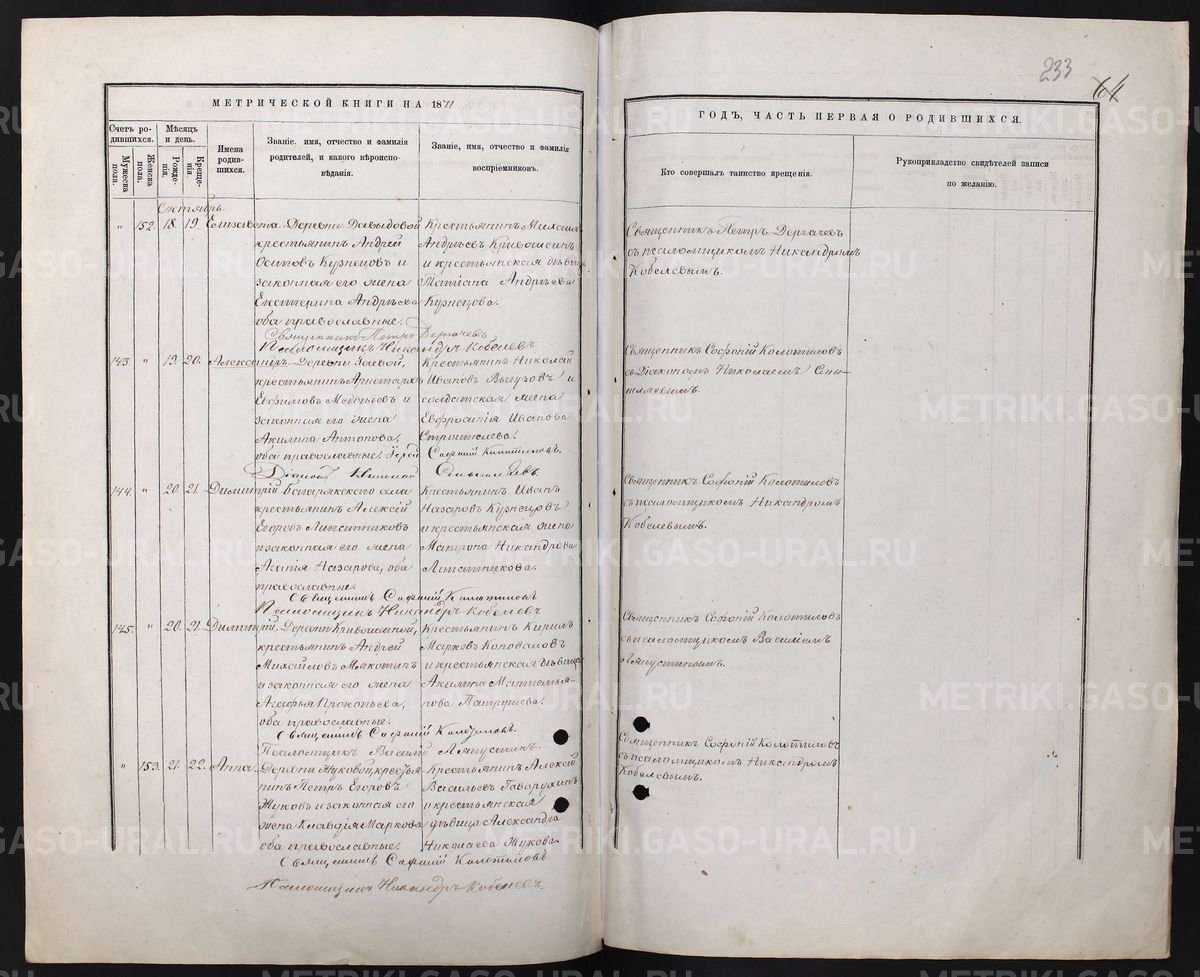 233
64
МЕТРИЧЕСКОЙ КНИГИ НА 1871
ГОДЪ, ЧАСТЬ ПЕРВАЯ О РОДИВШИХСЯ.
Счетъ ро-
дившихся.
Мужеска
пола.
Женска
пола.
Мѣсяцъ
и день.
Рожде-
нія.
Креще-
нія.
Имена
родив-
шихся.
Званіе, имя, отчество и фамилія
родителей, и какого вѣроиспо-
вѣданія.
Званіе, имя, отчество и фамилія
воспріемниковъ.
Кто совершалъ таинство крещенія.
Рукоприкладство свидѣтелей записи
по желанію.
Октябрь.
" 152. 18. 19. Елизавета.
Деревни Давыдовой
крестьянинъ Андрей
Осиповъ Кузнецовъ и
законная его жена
Екатерина Андрѣева
оба православные.
Крестьянинъ
Андрѣевъ Кривошеинъ
и крестьянская дѣвица
Татіана Андрѣева
Кузнецова.
Священникъ Петръ Дергачевъ
съ псаломщикомъ Никандромъ
Кобелевымъ.
Священникъ Петръ Дергачевъ
Псаломщикъ Никандръ Кобелевъ
143. " 19. 20. Александръ.
Деревни
крестьянинъ
Евфимовъ и
законная его жена
Акилина Антонова,
оба православные.
Крестьянинъ Николай
Ивановъ и
солдатская жена
Евфросинія Иванова
Строителева.
Священникъ Софоній Колотиловъ
съ Діакономъ Николаемъ
Софоній Колотиловъ.
Діаконъ Николай
144. " 20. 21. Димитрій
Багарякского села
крестьянинъ Алексѣй
Егоровъ Липатниковъ
и законная его жена
Назарова, оба
православные.
Крестьянинъ Иванъ
Назаровъ Кузнецовъ
и крестьянская жена
Матрона Никандрова
Липатникова.
Священникъ Софоній Колотиловъ
съ псаломщикомъ Никандромъ
Кобелевымъ.
Священникъ Софоній Колотиловъ
Псаломщикъ Никандръ Кобелевъ
145. " 20. 21. Димитрій.
Деревни Кривошеиной,
крестьянинъ Андрей
Михайловъ Мякотинъ
и законная его жена
Агафья Прокопьева,
оба православные.
Крестьянинъ Кирилъ
Марковъ Коноваловъ
и крестьянская дѣвица
Акилина
Священникъ Софоній Колотиловъ
съ псаломщикомъ Василіемъ
Ляпустинымъ.
Священникъ Софоній Колотиловъ.
Псаломщикъ Василій Ляпустинъ.
" 153. 21. 22. Анна.
Деревни Жуковой, крестья-
нинъ Петръ Егоровъ
Жуковъ и законная его
жена Клавдія Маркова
оба православные.
Крестьянинъ Алексѣй
Васильевъ Говорухинъ
и крестьянская
дѣвица Александра
Николаева Жукова.
Священникъ Софоній Колотиловъ
съ псаломщикомъ Никандромъ
Кобелевымъ.
Священникъ Софоній Колотиловъ
Псаломщикъ Никандръ Кобелевъ.
METRIKI.GASO-URAL.RU